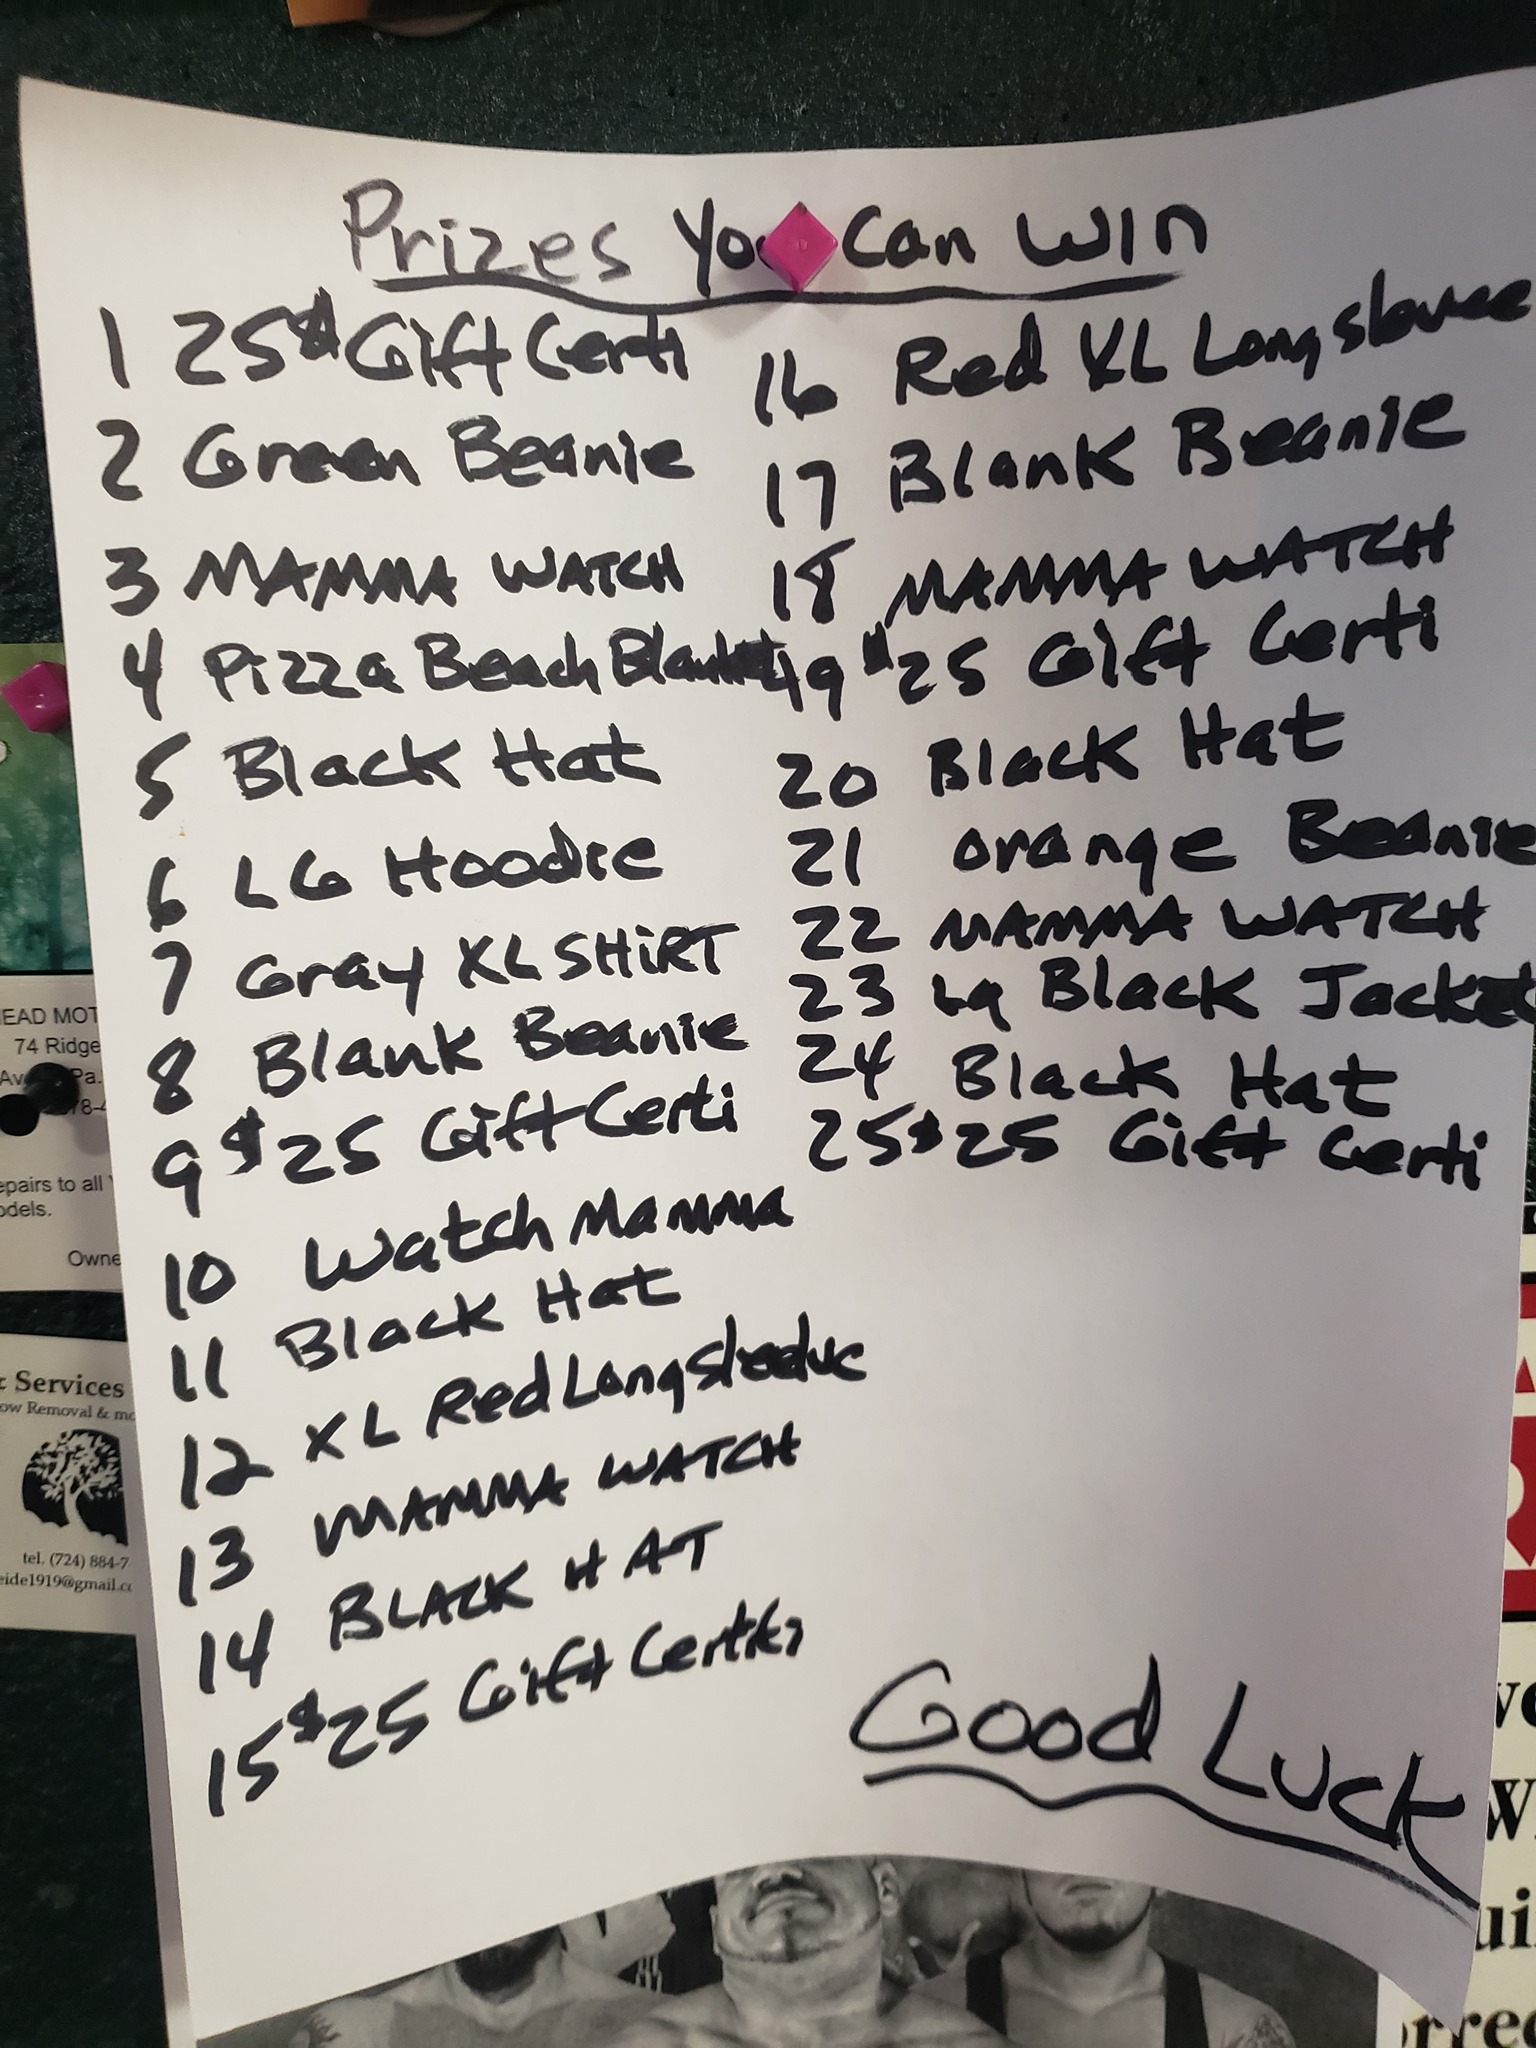 Prizes You Can Win
1 25$ Gift Certi
2 Green Beanie
3 MAMMA WATCH
4 Pizza Beach Blanket
5 Black Hat
6 LG Hoodie
7 Gray XL SHiRT
8 Blank Beanie
9 $25 Gift Certi
10 Watch Mamma
11 Black Hat
12 XL Red Long
13 MAMMA WATCH
14 BLACK HAT
15 $25 Gift
16 Red XL Long
17 Blank Beanie
18 MAMMA WATCH
19 $25 Gift Certi
20 Black Hat
21 orange Beanie
22 MAMMA WATCH
23 Lg Black Jacket
24 Black Hat
25 $25 Gift Certi
Good Luck
EAD MOT
74 Ridge
Pa.
epairs to all
odels.
Owne
Services
ow Removal & mo
tel. (724) 884-7
eide1919@gmail.co